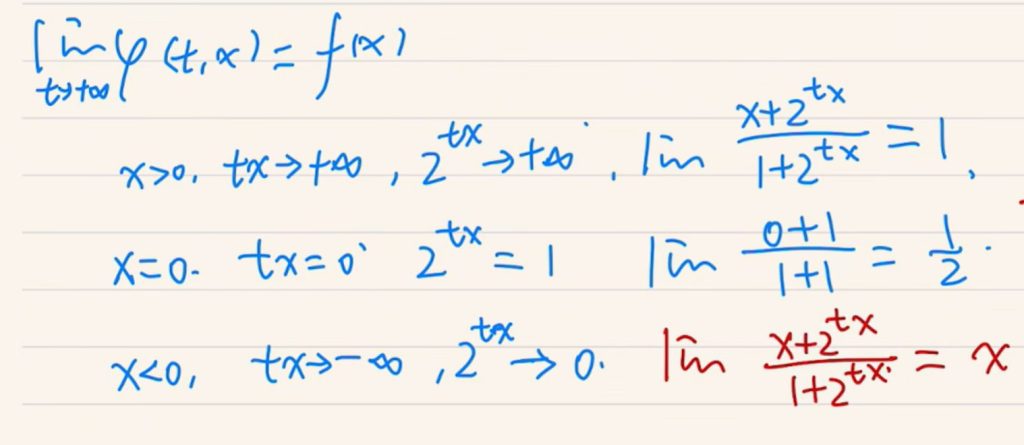 lim φ(t,x) = f(x)
t→+∞
x>0. tx→+∞, 2^{tx}→+∞. lim \frac{x+2^{tx}}{1+2^{tx}} = 1.
x=0. tx=0 2^{tx}=1 lim \frac{0+1}{1+1} = \frac{1}{2}.
x<0, tx→-∞, 2^{tx}→0. lim \frac{x+2^{tx}}{1+2^{tx}} = x